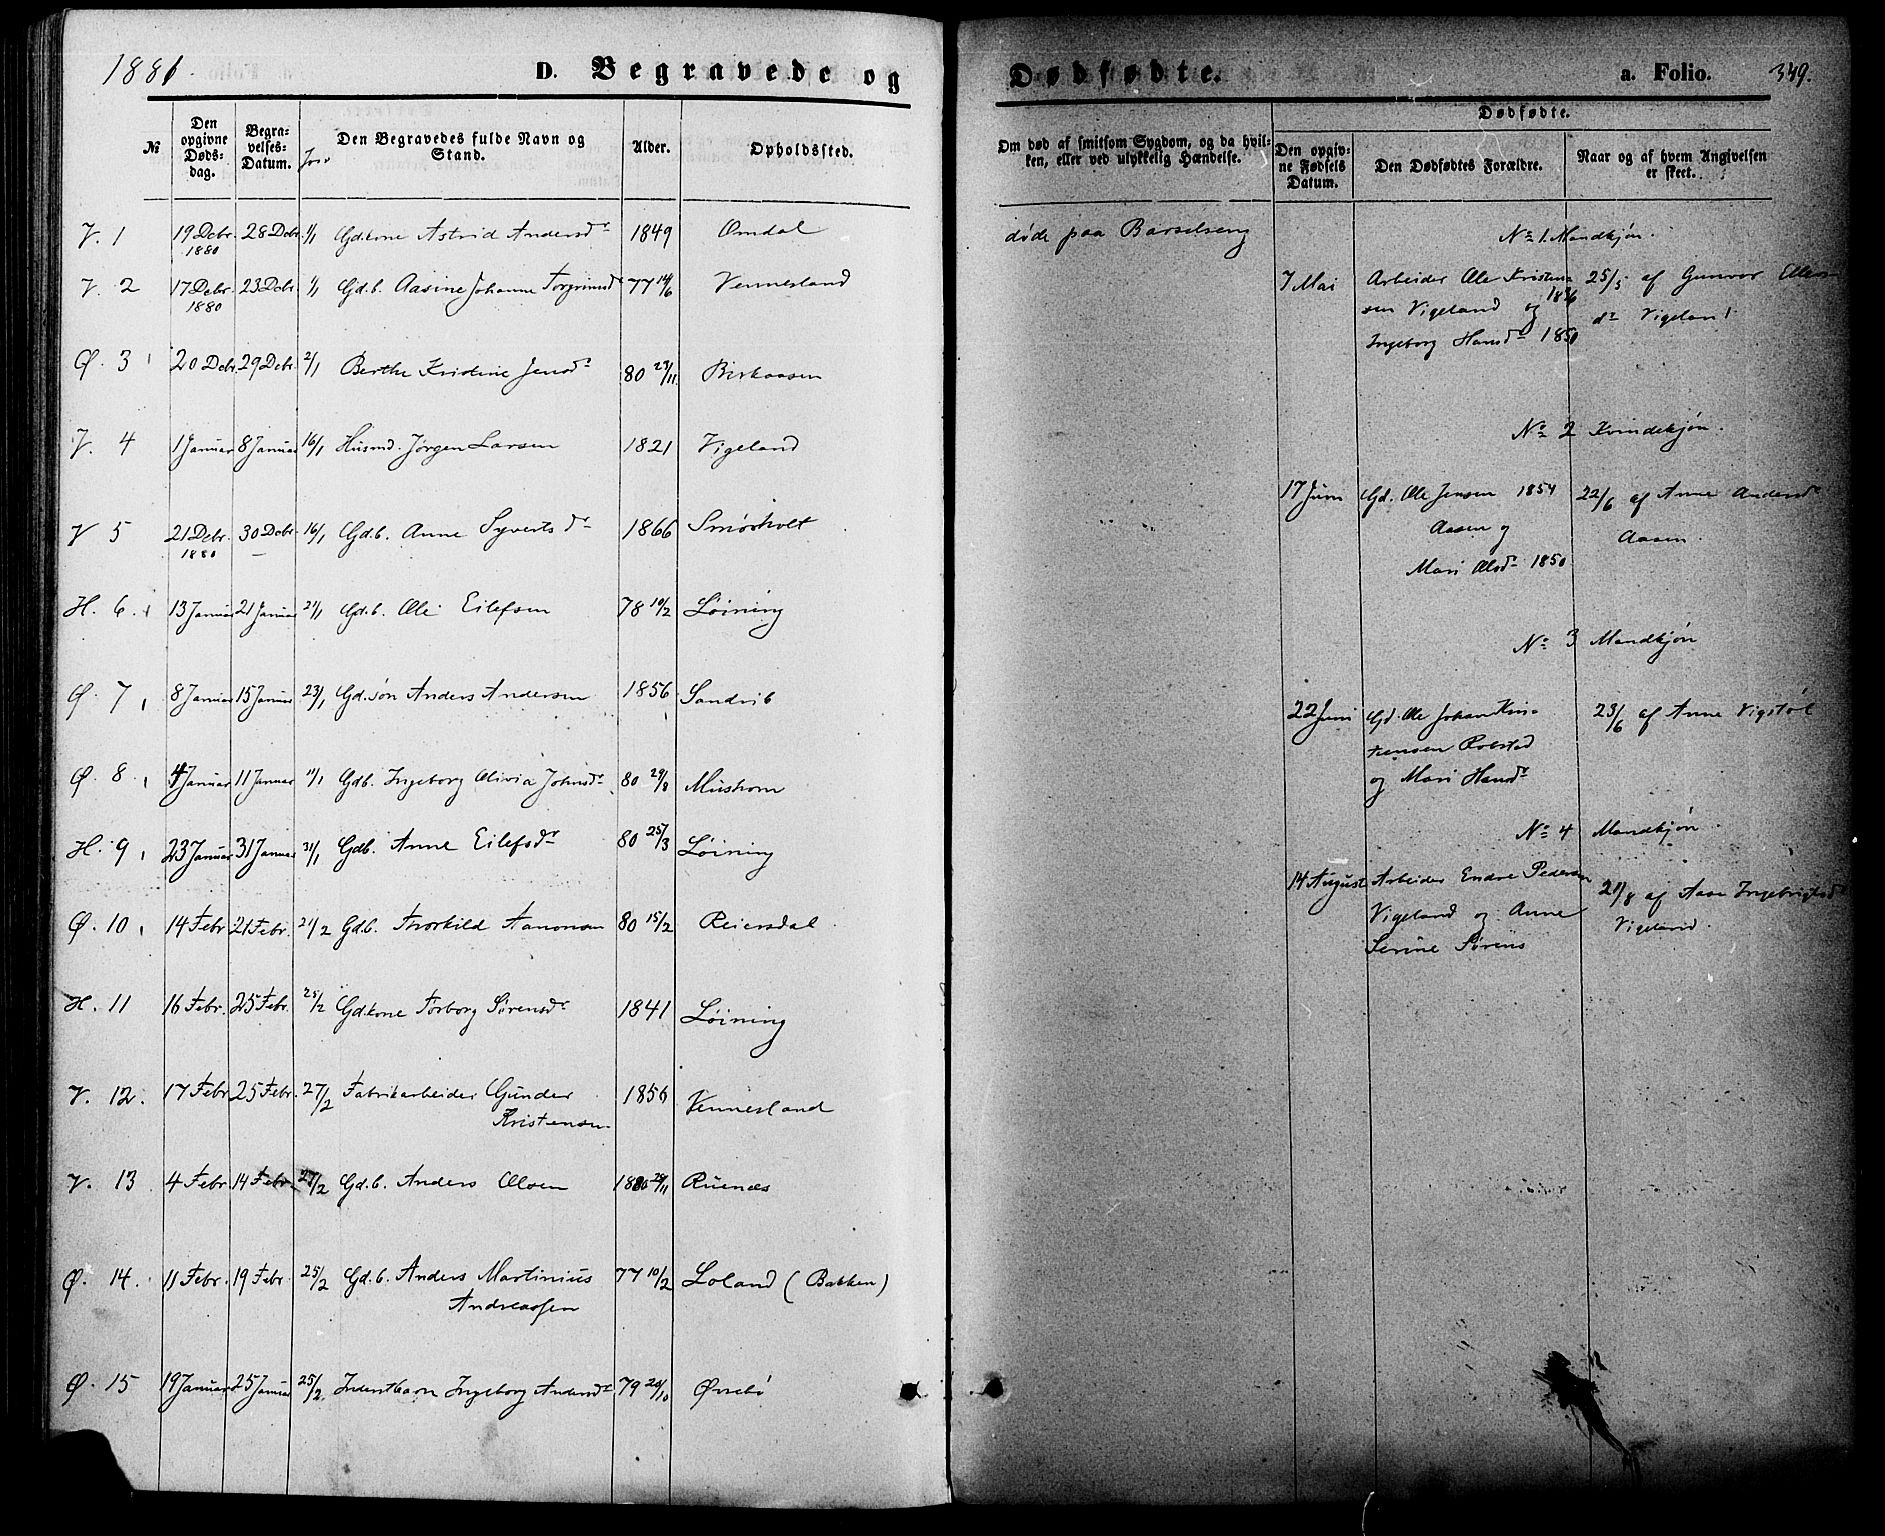 1881.
D. Begravede og
Dødfødte.
a. Folio.
349.
№
Den opgivne Døds-dag.
Begra-velses-Datum.
Den Begravedes fulde Navn og Stand.
Alder.
Opholdssted.
Om død af smitsom Sygdom, og da hvil-ken, eller ved ulykkelig Hændelse.
Dødfødte.
Den opgiv-ne Fødsels Datum.
Den Dødfødtes Forældre.
Naar og af hvem Angivelsen er skeet.
V. 1 19 Debr. 1880 28 Debr 1/1 Gd.kone Astrid Andersdr 1849 Omdal døde paa Barselseng
V. 2 17 Debr. 1880 23 Debr. 1/1 Gd.b. Aasine Johanne Torgrimsdr 77 14/6 Vennesland
Ø. 3 20 Debr 29 Debr. 2/1 Berthe Kristine Jensdr 80 23/11 Birkaasen
V. 4 1 Januar 8 Januar 16/1 Husmd. Jørgen Larsen 1821 Vigeland
V 5 21 Debr. 1880 30 Debr. 16/1 Gd.b. Anne Syvertsdr 1866 Smørholt
H. 6. 13 Januar 21 Januar 21/1 Gd.b. Ole Eilefsen 78 10/2 Løining
Ø. 7 8 Januar 15 Januar 23/1 Gd.søn Anders Andersen 1856 Sandvik
Ø. 8 4 Januar 11 Januar 11/1 Gdb. Ingeborg Olivia Johnsdr 80 29/8 Mushom
H. 9 23 Januar 31 Januar 31/1 Gdb. Anne Eilefsdr 80 25/3 Løining
Ø. 10 14 Febr 21 Febr. 21/2 Gd.b. Thorkild Aanonsen 80 15/2 Reiersdal
H. 11 16 Febr. 25 Febr. 25/2 Gd.kone Torborg Sørensdr 1841 Løining
V. 12. 17 Febr 25 Febr. 27/2 Fabrikarbeider Gunder 1856 Vennesland
Kristensen
V. 13 4 Febr 14 Febr. 27/2 Gd.b. Anders Olsen 1880 28/11 Ruenæs
Ø. 14. 11 Febr. 19 Febr. 25/2 Gd.b. Anders Martinius 77 10/2 Loland (Bakken)
Andreassen
Ø. 15 19 Januar 25 Januar 25/2. Inderstbarn Ingeborg Andersdr 79 20/10 Øvrebø
No 1. Mandkjøn.
7 Mai Arbeider Ole Kristen- 25/5 af Gunvor Ellens
sen Vigeland og 1836 dr Vigeland
Ingeborg Hansdr 1850
No 2 Kvindekjøn.
17 Juni Gd. Ole Jensen 1854 22/6 af Anne Andersdr
Aasen og Aasen.
Mari Olsdr 1850
No 3 Mandkjøn
22 Juni Gd. Ole Johan Kris- 23/6 af Anne Vigstøl
tensen Robstad
og Mari Hansdr
No 4 Mandkjøn.
14 August Arbeider Endre Pedersen 21/8 af Aase Ingebrigtsdr
Vigeland og Anne Vigeland.
Serine Sørens